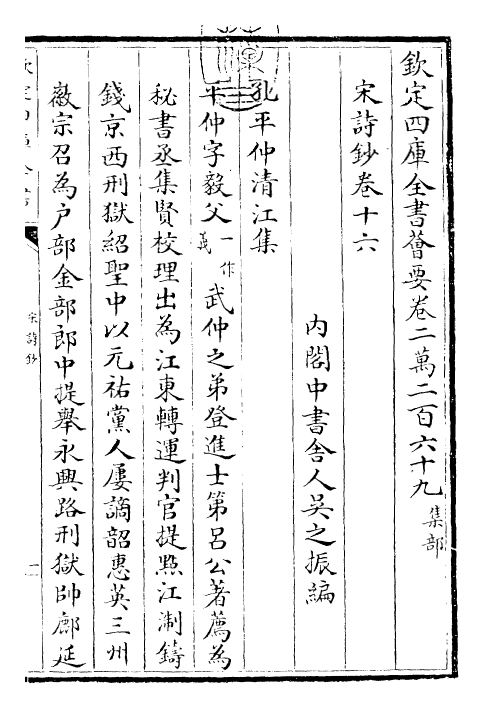 欽定四庫全書薈要卷二萬二百六十九 集部
宋詩鈔卷十六
內閣中書舍人吳之振編
孔平仲清江集
平仲字毅父一作義武仲之弟登進士第呂公著薦為
秘書丞集賢校理出為江東轉運判官提㸃江淛鑄
錢京西刑獄紹聖中以元祐黨人屢謫韶惠英三州
徽宗召為户部金部郎中提舉永興路刑獄帥鄜延
宋詩鈔